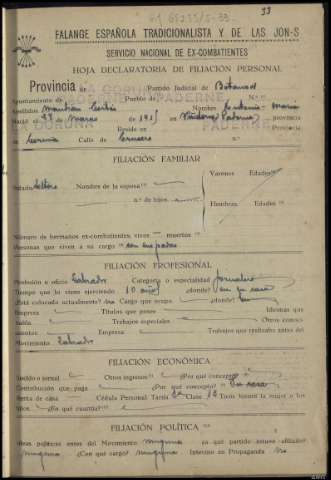 33
FALANGE ESPAÑOLA TRADICIONALISTA Y DE LAS JON-S
SERVICIO NACIONAL DE EX-COMBATIENTES
HOJA DECLARATORIA DE FILIACIÓN PERSONAL
Provincia de LA CORUÑA Partido Judicial de Betanzos
Ayuntamiento de PADERNE Pueblo de N.º
Apellidos Nombre Antonio María
Nació el de Marzo de en provincia
LA CORUÑA Reside en PADERNE Provincia
Coruña Calle de
FILIACIÓN FAMILIAR
Estado Soltero Nombre de la esposa Varones Edades
n.º de hijos Hembras Edades
Número de hermanos ex-combatientes vivos muertos
Personas que viven a su cargo con sus padres
FILIACIÓN PROFESIONAL
Profesión u oficio Labrador Categoría o especialidad jornalero
Tiempo que lo viene ejerciendo 10 años ¿dónde? en su casa
¿Está colocado actualmente? Cargo que ocupa ¿dónde?
Empresa Títulos que posee Idiomas que
habla Trabajos especiales Otros conoci-
mientos Empresa Trabajos que realizaba antes del
Movimiento Labrador
FILIACIÓN ECONÓMICA
Sueldo o jornal Otros ingresos ¿Por qué concepto?
Contribución que paga ¿Por qué concepto? Su casa
Renta de casa Cédula Personal Tarifa Clase 13 Tiene bienes la mujer o los
hijos. ¿En qué cuantía?
FILIACIÓN POLÍTICA
Ideas políticas antes del Movimiento ninguna en qué partido estuvo afiliado
ninguno ¿Con qué cargo? ninguno Intervino en Propaganda no